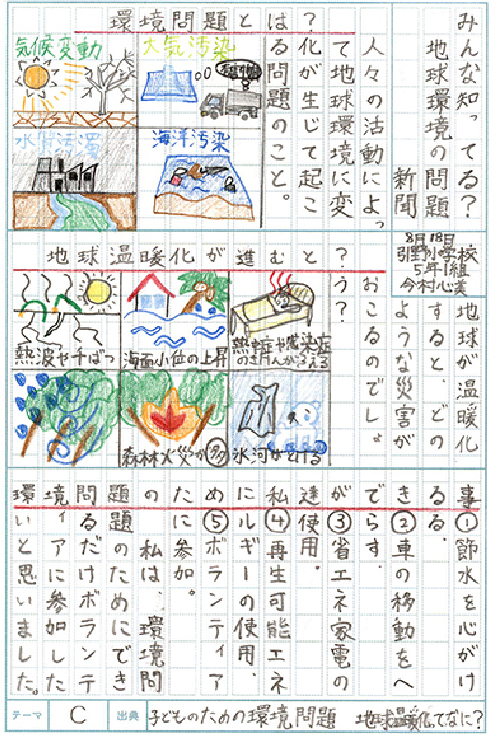 みんな知ってる?
地球環境の問題
新聞
環境問題とは?
人々の活動によっ
て地球環境に変
化が生じて起こ
る問題のこと。
気候変動
大気汚染
水質汚濁
海洋汚染
8月18日
引野小学校
5年1組
今村心美
地球温暖化が進むと?
地球が温暖化
すると、どの
ような災害が
おこるのでしょ
う?
熱波や干ばつ
海面水位の上昇
熱中症や感染症
のきけんがふえる
森林火災が多
氷河がとける
環境問題のために私達ができる事
①節水を心がけ
る。
②車の移動をへ
らす。
③省エネ家電の
使用。
④再生可能エネ
ルギーの使用。
⑤ボランティア
に参加。
私は、環境問
題のためにでき
るだけボランテ
ィアに参加した
いと思いました。
テーマ C 出典 子どものための環境問題 地球温暖化てなに?